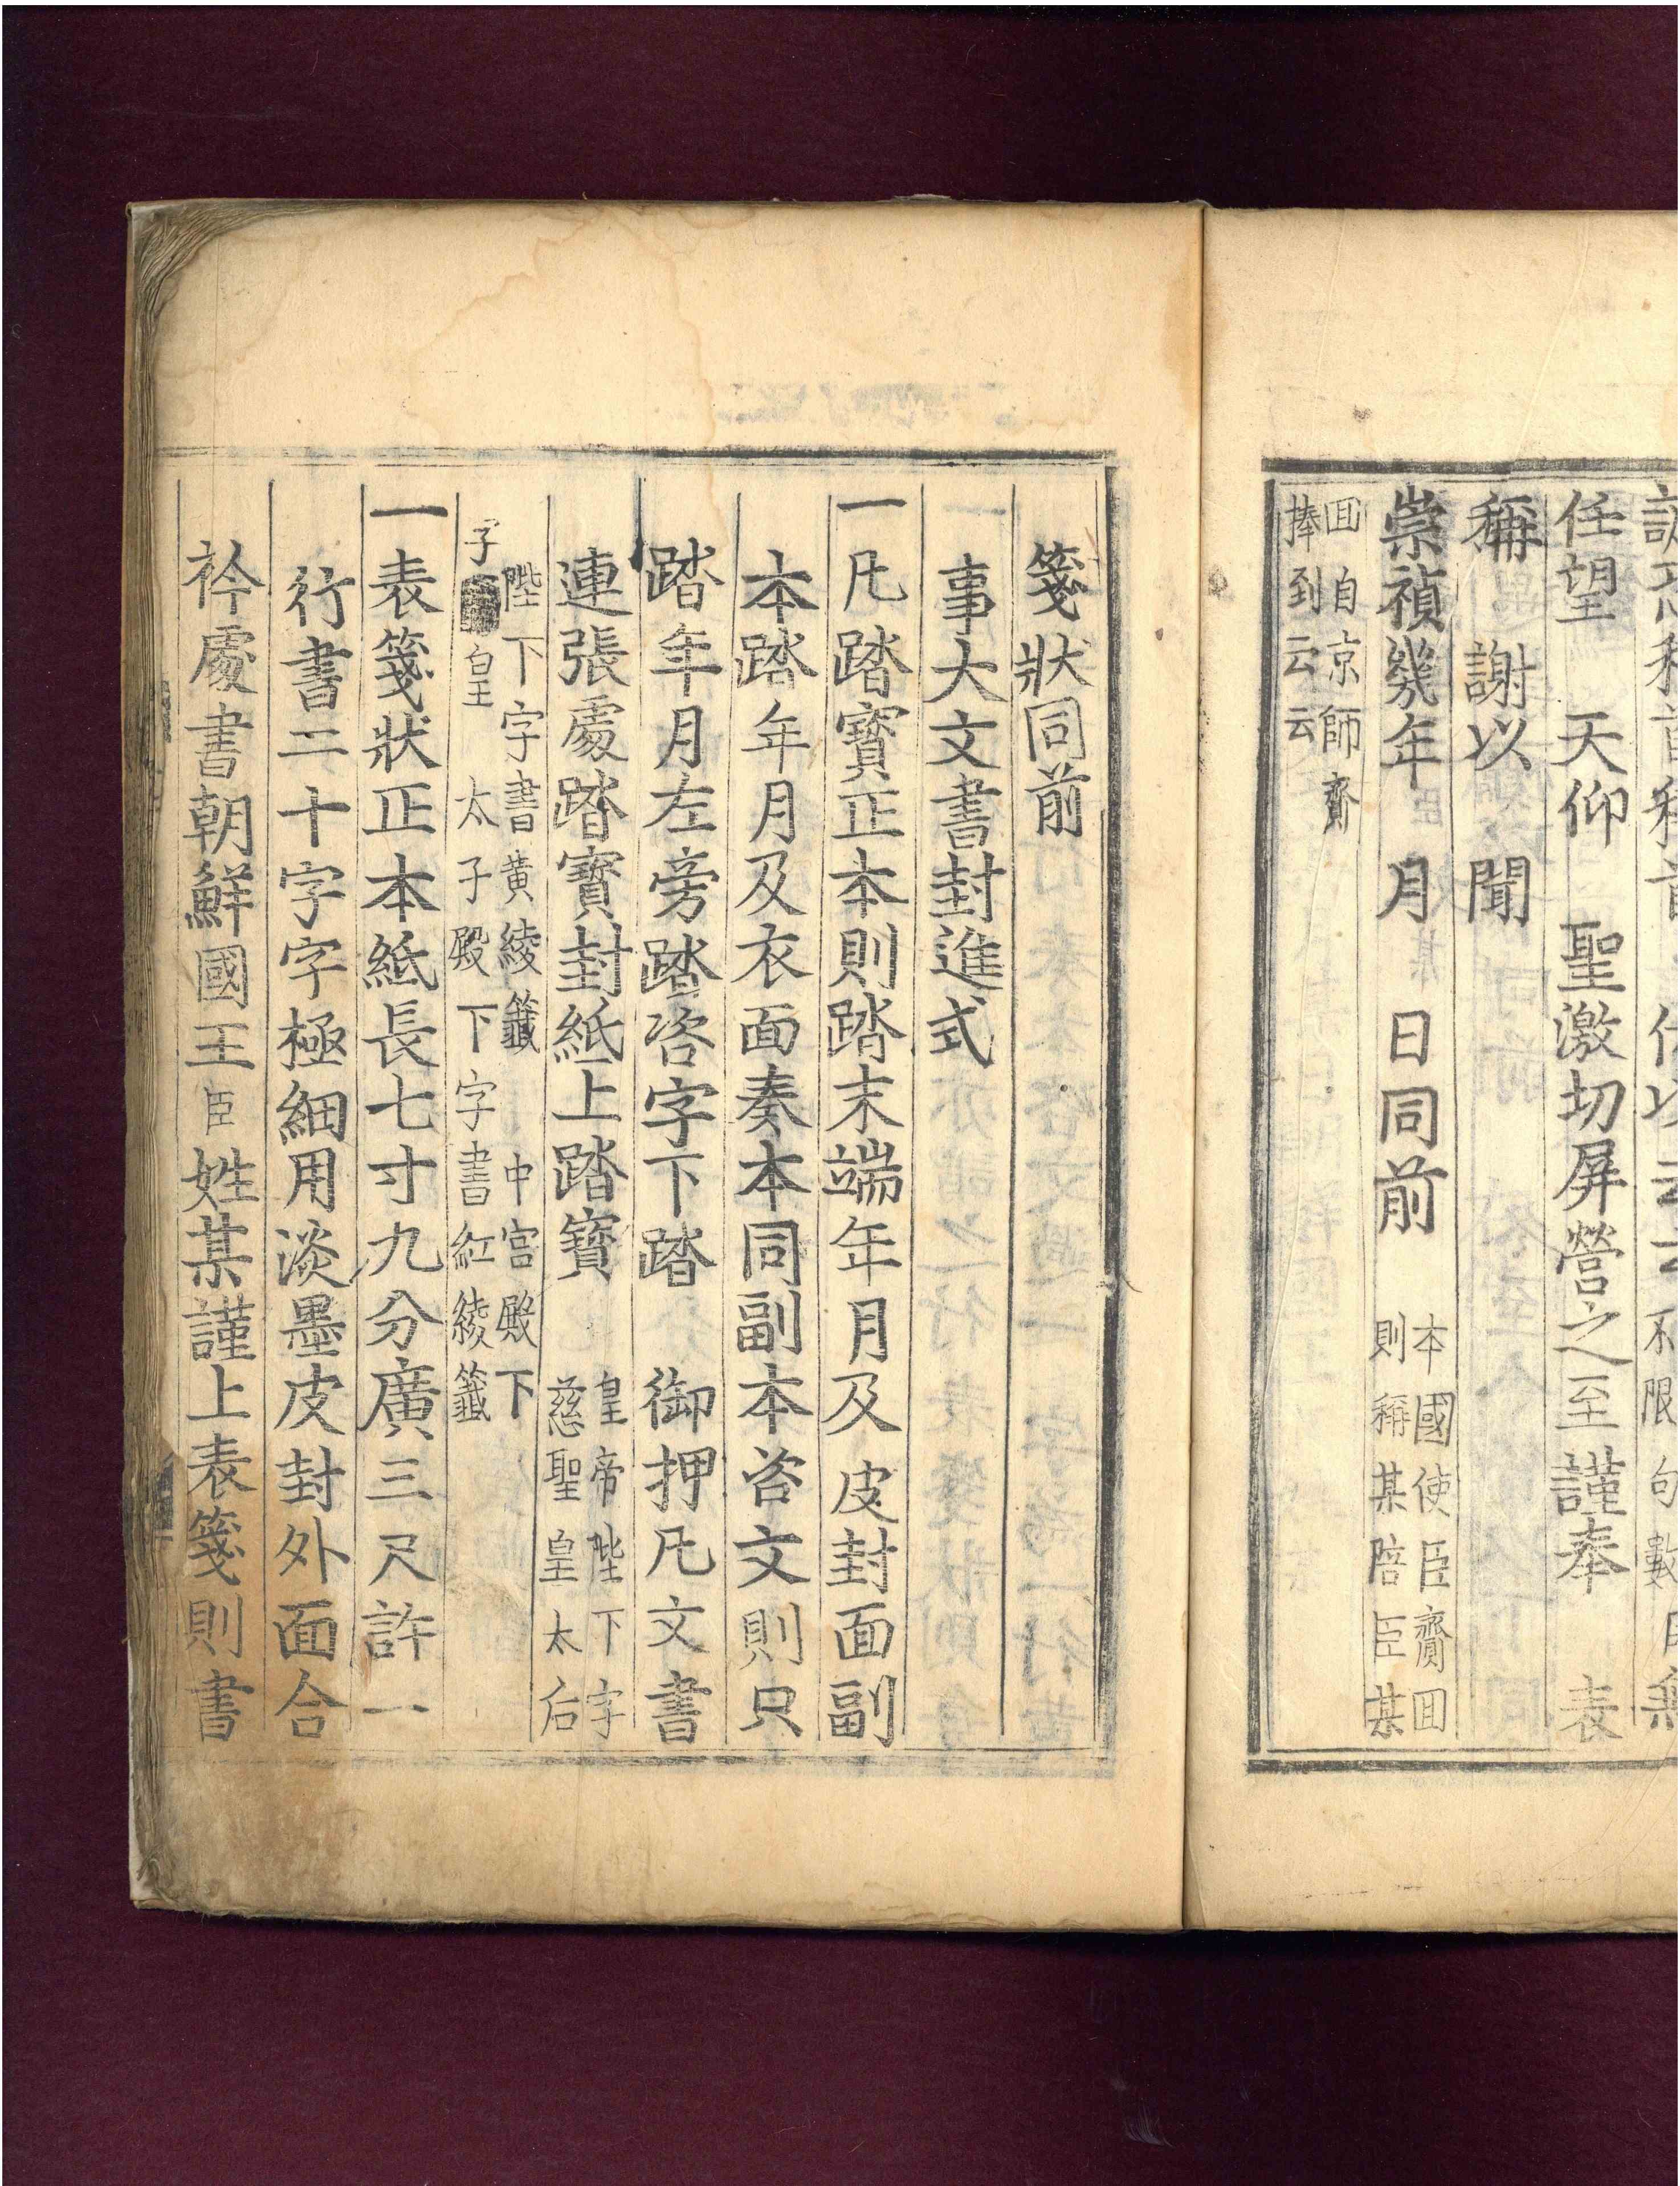 任望 天仰 聖激切屏營之至謹奉 表
稱 謝以 聞
崇禎幾年 月 日同前 本國使臣齎回
則稱某陪臣某
回自京師齎
捧到云云
箋狀同前
事大文書封進式
一凡踏寶正本則踏末端年月及皮封面副
本踏年月及衣面奏本同副本咨文則只
踏年月左旁踏咨字下踏 御押凡文書
連張處踏寶封紙上踏寶 皇帝陛下字
慈聖皇太后
陛下字書黃綾籤 中宮殿下
子 皇 太子殿下字書紅綾籤
一表箋狀正本紙長七寸九分廣三尺許一
行書二十字字極細用淡墨皮封外面合
衿處書朝鮮國王臣姓某謹上表箋則書